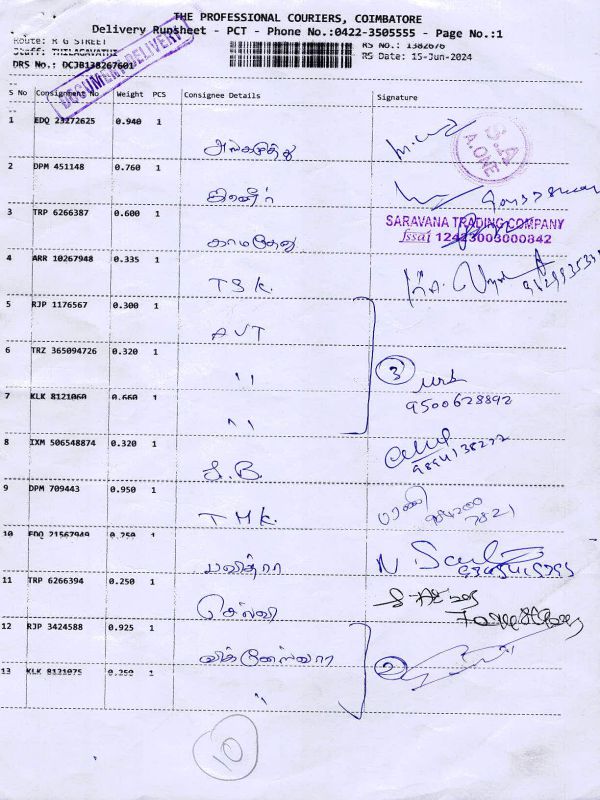 THE PROFESSIONAL COURIERS, COIMBATORE
Delivery Runsheet - PCT - Phone No.:0422-3505555 - Page No.:1
Route: R G STREET
RS No.: 1382676
Staff: THILAGAVATHI
RS Date: 15-Jun-2024
DRS No.: DCJB138267601
DOCUMENT DELIVERY
S No Consignment No Weight PCS Consignee Details Signature
1 EDQ 23272625 0.940 1
A.ONE
2 DPM 451148 0.760 1
3 TRP 6266387 0.600 1 காமதேனு
SARAVANA TRADING COMPANY
fssai 12423003000842
4 ARR 10267948 0.335 1 T S K.
5 RJP 1176567 0.300 1 AVT
6 TRZ 365094726 0.320 1 "
3
7 KLK 8121060 0.660 1 "
9500628892
8 IXM 506548874 0.320 1 S. B.
9894138222
9 DPM 709443 0.950 1 T M K.
பரணி
7821
10 EDQ 21567949 0.250 1 பவித்ரா
11 TRP 6266394 0.250 1 செல்வி
12 RJP 3424588 0.925 1 விக்னேஸ்வரா
2
13 KLK 8121075 0.250 1 "
10